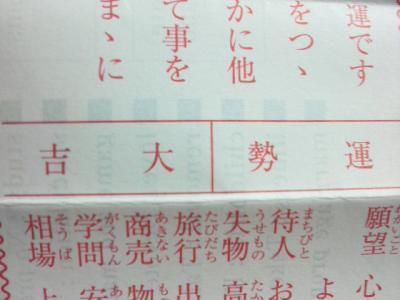 運です
をつゝ
かに他
て事を
まゝに
運勢
大吉
願望 心
待人 お
失物 高
旅行 出
商売 物
学問 安
相場 上
まちびと
うせもの
たびだち
あきない
がくもん
そうば